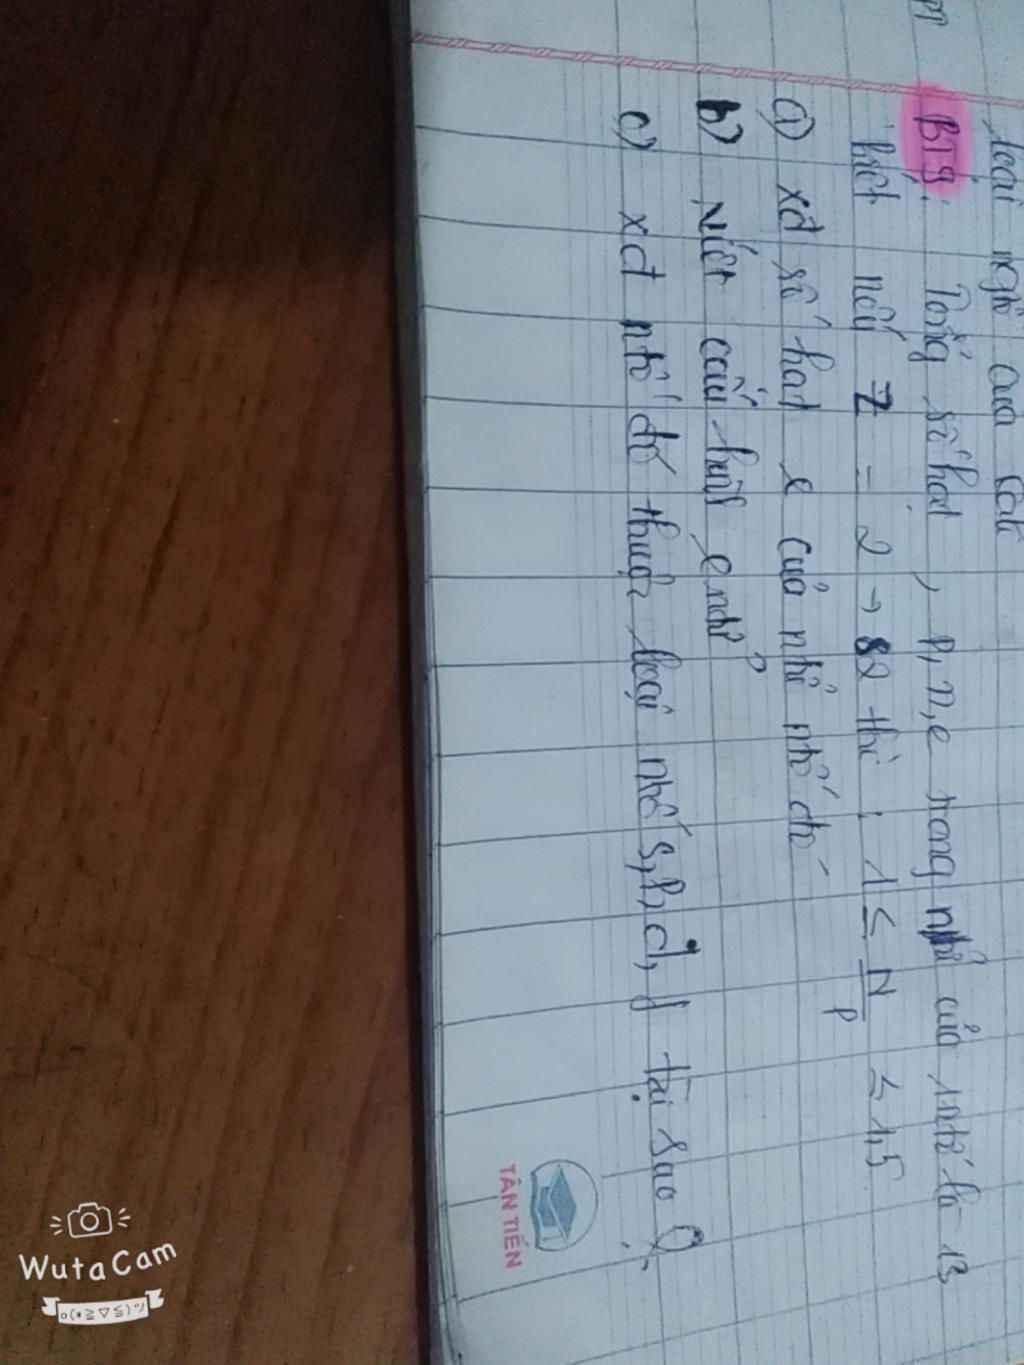 loại ngtố của
BT9: Tổng số hạt, p, n, e trong ngtử của 1 ntố là 13
biết nếu Z = 2 → 82 thì : 1 ≤ N/P ≤ 1,5
a) xđ số hạt e của ntử ntố đó
b) viết cấu hình e ntử?
c) xđ ntố đó thuộc loại ntố s, p, d, f tại sao?
TÂN TIẾN
WutaCam
o(*≧▽≦)ツ